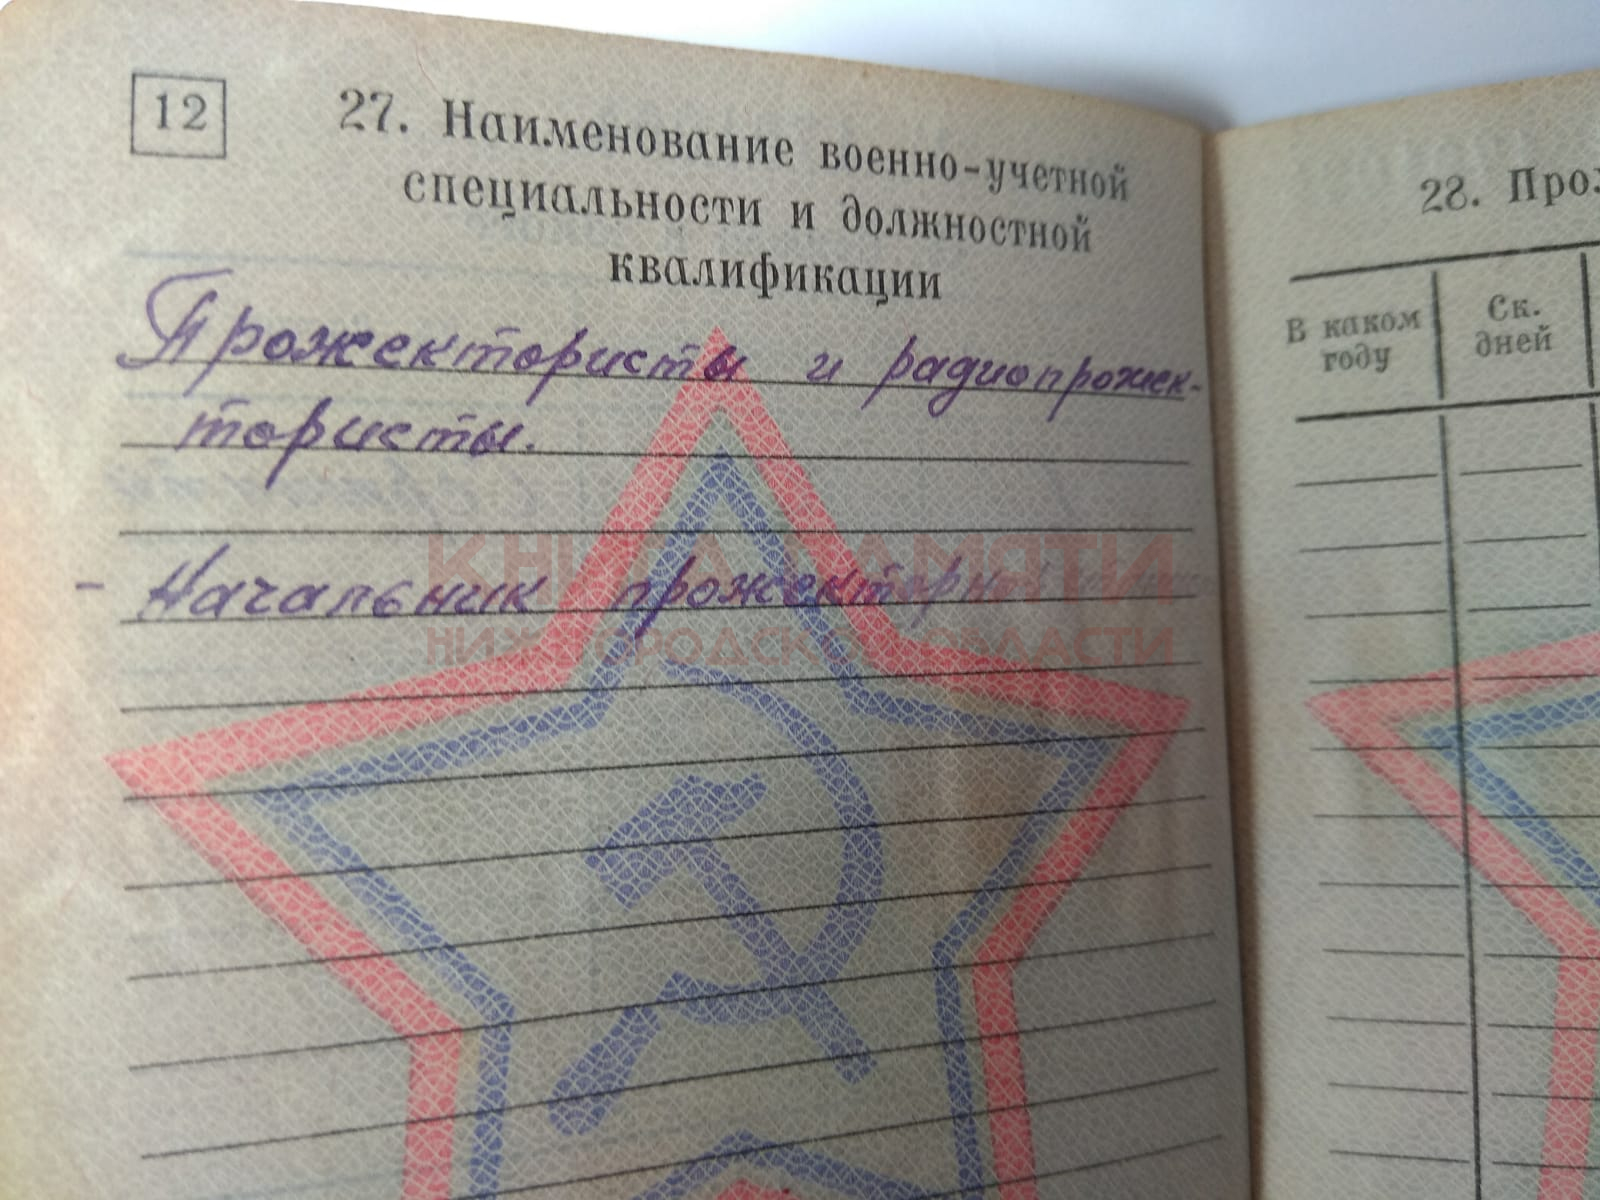 12
27. Наименование военно-учетной
специальности и должностной
квалификации
Прожектористы и радиопрожек-
тористы.
- Начальник
КНИГА ПАМЯТИ
НИЖЕГОРОДСКОЙ ОБЛАСТИ
28.
В каком
году
Ск.
дней